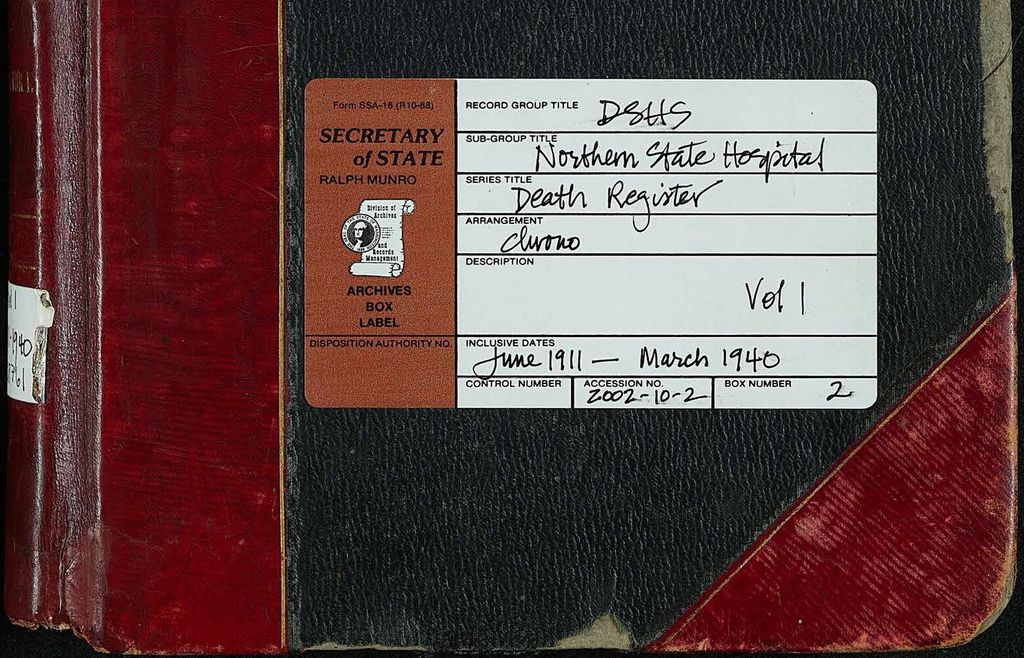 Form SSA-16 (R10-88)
SECRETARY
of STATE
RALPH MUNRO
Division of
Archives
and
Records
Management
ARCHIVES
BOX
LABEL
DISPOSITION AUTHORITY NO.
RECORD GROUP TITLE DSHS
SUB-GROUP TITLE
Northern State Hospital
SERIES TITLE
Death Register
ARRANGEMENT
chrono
DESCRIPTION
Vol 1
INCLUSIVE DATES
June 1911 — March 1940
CONTROL NUMBER
ACCESSION NO.
2002-10-2
BOX NUMBER 2